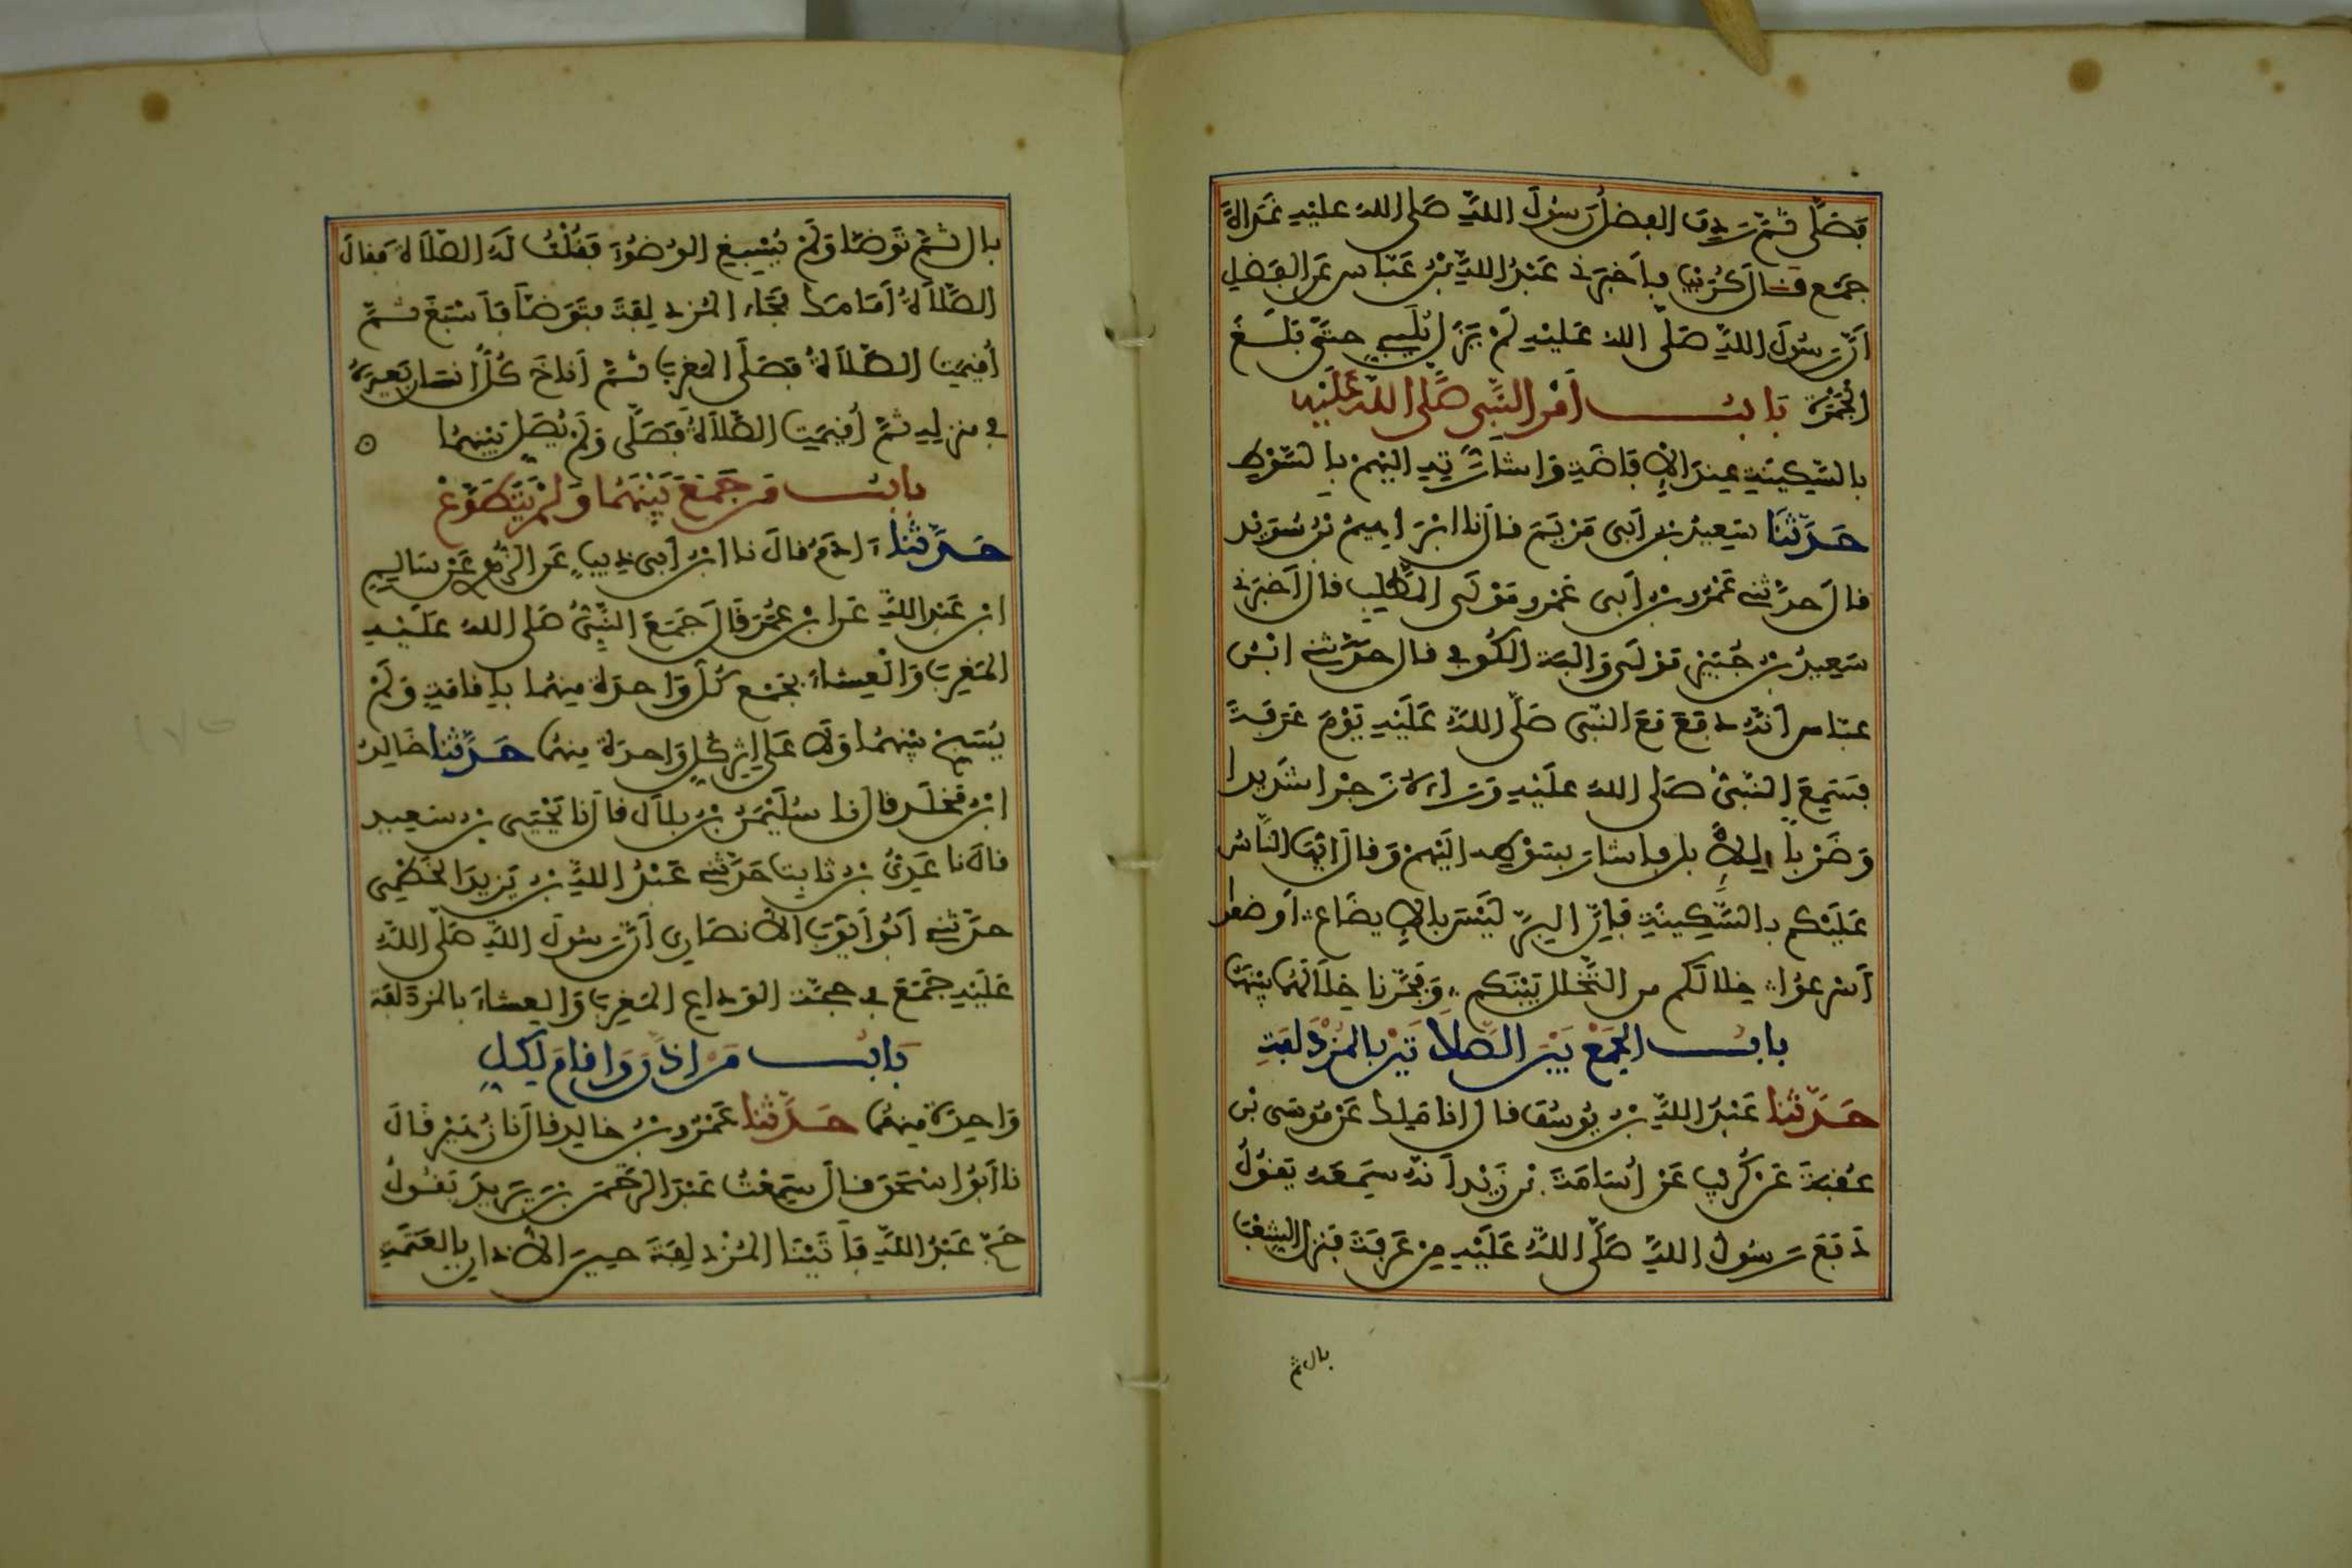 فَصَلَّى ثُمَّ رَدِفَ الفضلُ رَسُولَ اللهِ صَلى الله عليْهِ غَدَاةَ
جَمْعٍ قال كُرَيْب فأخبرني عَبْدُ اللهِ بْنُ عَبّاس عَن الفَضل
أنّ رَسُولَ اللهِ صَلّى الله عَليْهِ لَمْ يَزَل يُلَبِّي حتَّى بَلَغَ
الجَمْرَةَ بَابُ أَمْرِ النَّبِي صَلَّى اللهُ عَلَيْهِ
بالسَّكِينَةِ عِندَ الإِفَاضَةِ وَإشارَتِهِ إليْهِمْ بالسَّوْطِ
حَدَّثَنَا سَعِيدُ بن أبي مَرْيَمَ قالَ نا ابْرَاهِيمُ بْنُ سُوَيْد
قال حدّثنى عَمْرُو بن أبي عَمْرٍو مَوْلَى المُطَّلِب قال أخبَرنى
سَعِيدُ بن جُبَيْر مَوْلَى وَالبَةَ الكُوفي قال حدّثنى ابْنُ
عبّاس أنّهُ دفَعَ مَعَ النّبي صَلّى اللهُ عَلَيْهِ يَوْمَ عَرَفَةَ
فسَمِعَ النّبيُّ صَلى الله عَليْهِ وَرَاءه زَجْرا شَدِيدا
وَضَرْباً للإبل فأشار بسَوْطِه إليْهِمْ وَقال أيّها النَّاسُ
عَلَيْكم بالسَّكِينَةِ فَإنّ البِرّ لَيْسَ بالإيضَاع أوضعوا
أسْرعُوا خِلالَكم من التَّخَلل بَيْنَكم وَفَجَّرنا خِلالَهُما بَيْنَهُما
بابُ الجَمْعِ بَيْنَ الصَّلاتَيْنِ بالمُزْدَلفَةِ
حَدَّثنا عَبْدُ اللهِ بن يُوسُف قال أنا مَالِك عَنْ مُوسَى بْن
عُقبَةَ عَنْ كُرَيْب عَنْ أُسَامَةَ بْن زَيْد أنّهُ سَمِعَهُ يَقُولُ
دَفَعَ رَسُولُ اللهِ صَلَّى اللهُ عَلَيْهِ مِنْ عَرَفَةَ فنزل الشِّعْبَ
بال ثم
بال ثُمَّ تَوَضّأ وَلَمْ يُسْبِغِ الوُضُوءَ فَقُلْتُ لَهُ الصَّلاةَ فقالَ
الصَّلاةُ أمَامَك فجَاءَ المُزدلِفَةَ فتَوَضّأ فأسْبَغَ ثمَّ
أُقِيمَتِ الصَّلاةُ فَصَلَّى المَغرِبَ ثُمَّ أناخَ كُلُّ إنسَانٍ بَعِيرَهُ
في منزلِهِ ثمَّ أُقِيمَتِ الصَّلاةُ فَصَلَّى وَلَمْ يُصَلِّ بَيْنَهُما
بابُ مَنْ جَمَعَ بَيْنَهُمَا وَلَمْ يَتَطَوَّعْ
حَدَّثنا آدَمُ قالَ نا ابْنُ أبي ذِيبٍ عَن الزُّهْري عَنْ سَالِمِ
ابْن عَبْدِ اللهِ عَن ابن عُمَرَ قَالَ جَمَعَ النَّبِيُّ صَلى الله عَلَيْهِ
المَغرِبَ وَالْعِشاءَ بجَمْعٍ كُلَّ وَاحدَةٍ منهُما بإقامَةٍ وَلَمْ
يُسَبِّحْ بَيْنَهُما وَلا عَلى إثر كُلِّ وَاحدَةٍ مِنهُما حَدَّثنا خَالِدُ
ابْنُ مَخْلَد قال نا سُلَيْمَنُ بْنُ بِلال قال نا يَحْيَى بن سَعِيد
قال نا عَدِيُّ بن ثابِت حَدَّثنى عَبْدُ اللهِ بن يَزِيدَ الخَطْمِي
حدّثنى أبُو أيّوبَ الأنصَاري أنّ رَسُولَ اللهِ صَلّى اللهُ
عَلَيْهِ جَمَعَ في حجَّة الوَدَاعِ المَغرِبَ وَالعِشاءَ بالمُزدَلفَة
بَابُ مَنْ أذّنَ وَأقامَ لكلِّ
وَاحِدَةٍ مِنهُما حَدَّثنا عَمْرُو بن خالِد قال نا زُهَيْر قالَ
نا أبُو اسْحَقَ قال سَمِعْتُ عَبْدَ الرَّحْمَن بن يَزِيدَ يَقُولُ
حَجَّ عَبْدُ اللهِ فَأتَيْنَا المُزدلِفَةَ حِينَ الأذانِ بالعَتَمَةِ